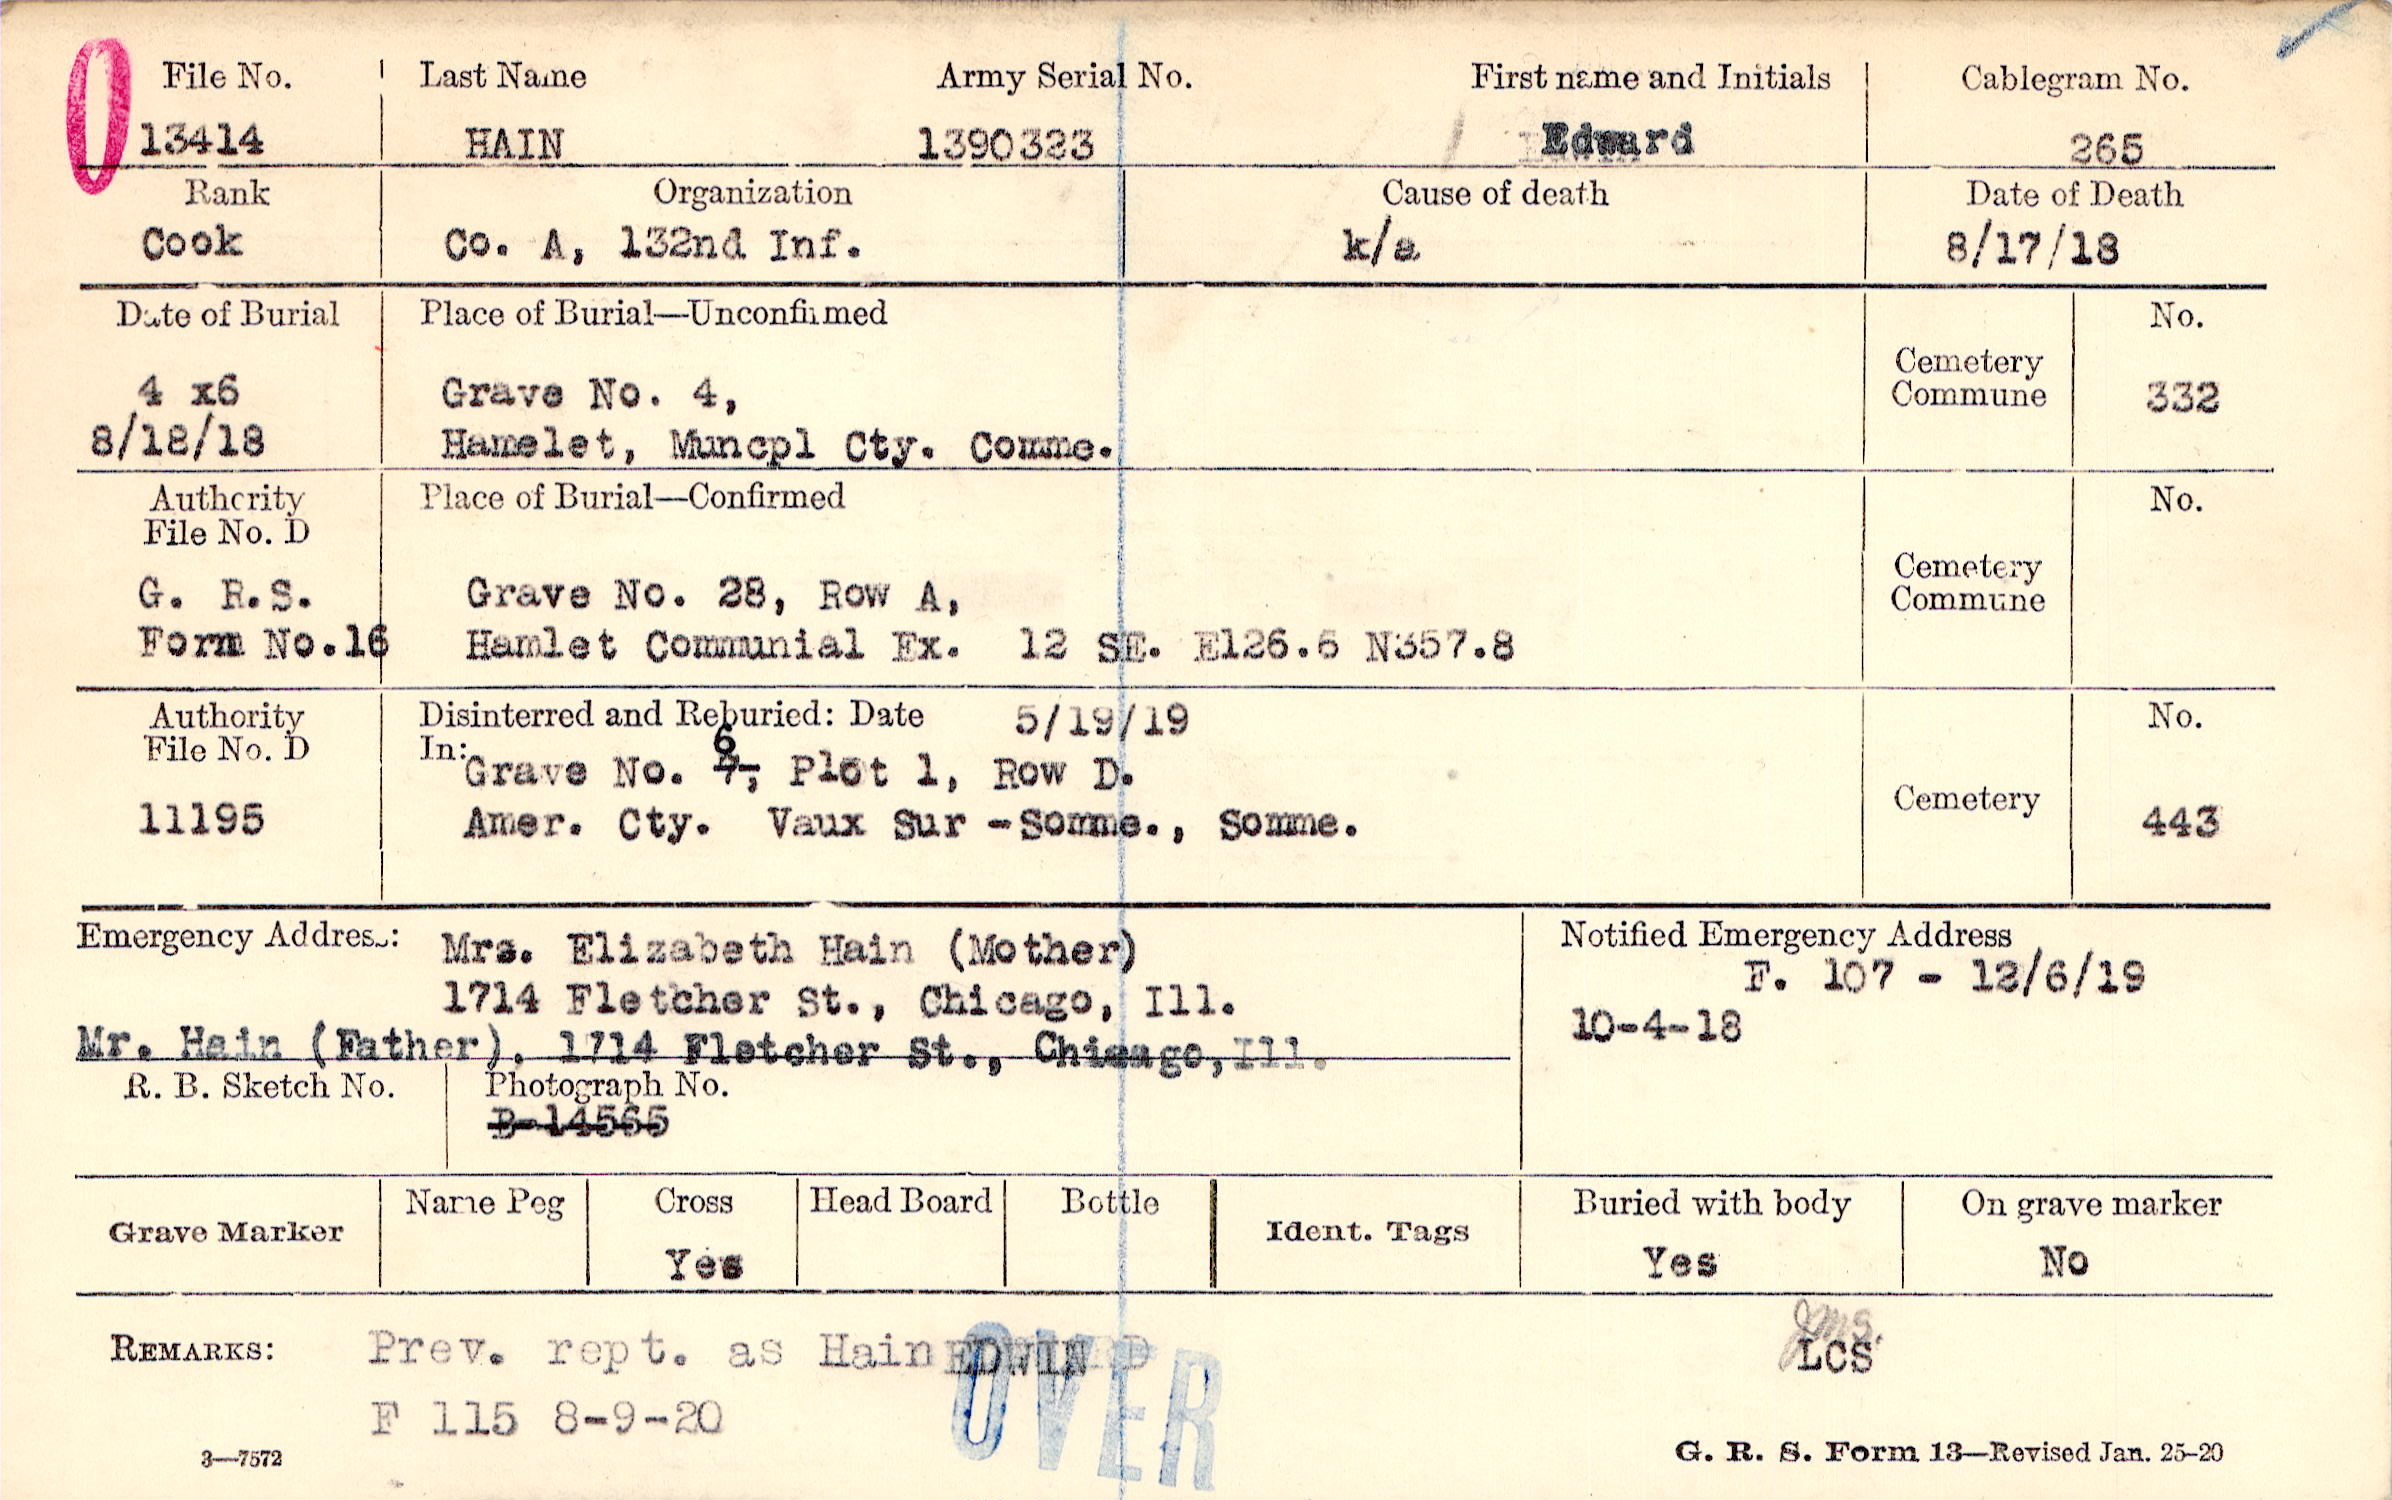 File No. Last Name Army Serial No. First name and Initials Cablegram No.
13414 HAIN 1390323 Edward 265
Rank Organization Cause of death Date of Death
Cook Co. A, 132nd Inf. k/a 8/17/18
Date of Burial Place of Burial—Unconfirmed No.
4 x6 Grave No. 4, Cemetery Commune 332
8/18/18 Hamelet, Muncpl Cty. Comme.
Authority Place of Burial—Confirmed No.
File No. D
G. R.S. Grave No. 28, Row A, Cemetery Commune
Form No.16 Hamlet Communial Ex. 12 SE. E126.6 N357.8
Authority Disinterred and Reburied: Date 5/19/19 No.
File No. D In: Grave No. 6 7, Plot 1, Row D.
11195 Amer. Cty. Vaux Sur -Somme., Somme. Cemetery 443
Emergency Address: Mrs. Elizabeth Hain (Mother) Notified Emergency Address
1714 Fletcher St., Chicago, Ill. F. 107 - 12/6/19
Mr. Hain (Father), 1714 Fletcher St., Chicago,Ill. 10-4-18
R. B. Sketch No. Photograph No.
B-14565
Grave Marker Name Peg Cross Head Board Bottle Ident. Tags Buried with body On grave marker
Yes Yes No
REMARKS: Prev. rept. as Hain EDWIN LCS
F 115 8-9-20 OVER
3—7572 G. R. S. Form 13—Revised Jan. 25-20